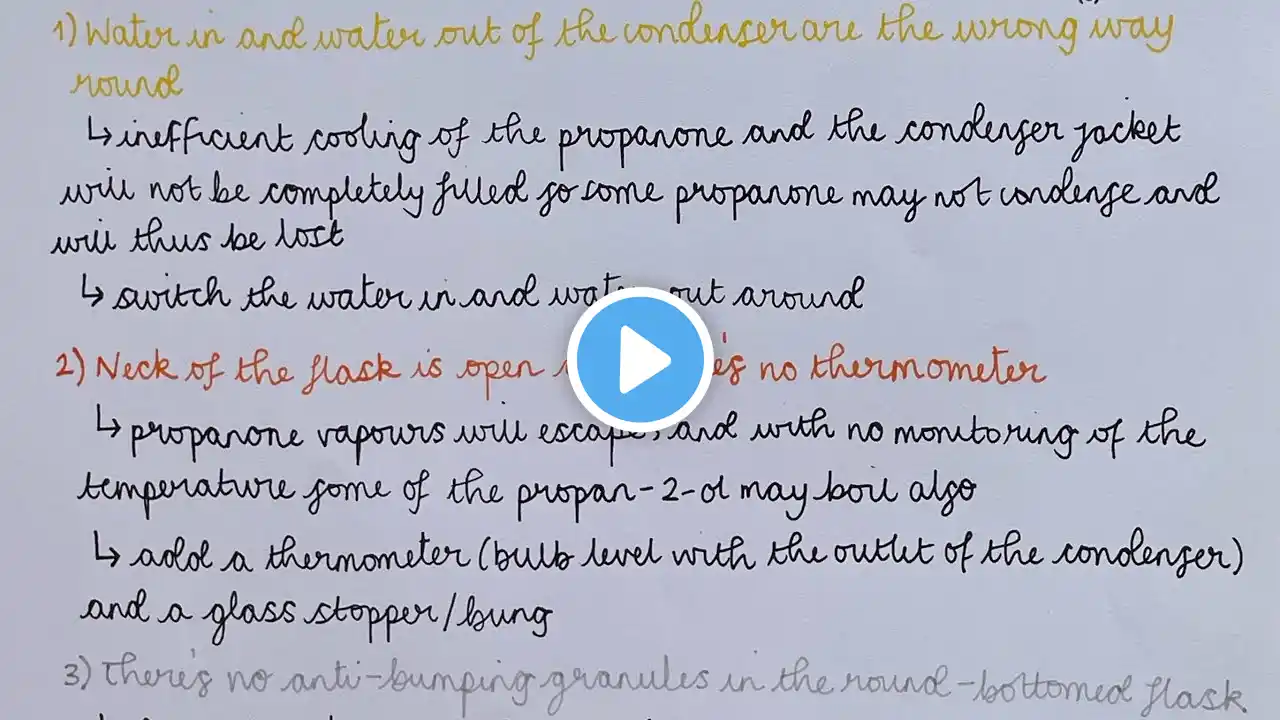 1) Water in and water out of the condenser are the wrong way
round
↳ inefficient cooling of the propanone and the condenser jacket
will not be completely filled so some propanone may not condense and
will thus be lost
↳ switch the water in and water out around
2) Neck of the flask is open no thermometer
↳ propanone vapours will escape, and with no monitoring of the
temperature some of the propan-2-ol may boil also
↳ add a thermometer (bulb level with the outlet of the condenser)
and a glass stopper/bung
3) There's no anti-bumping granules in the round-bottomed flask.